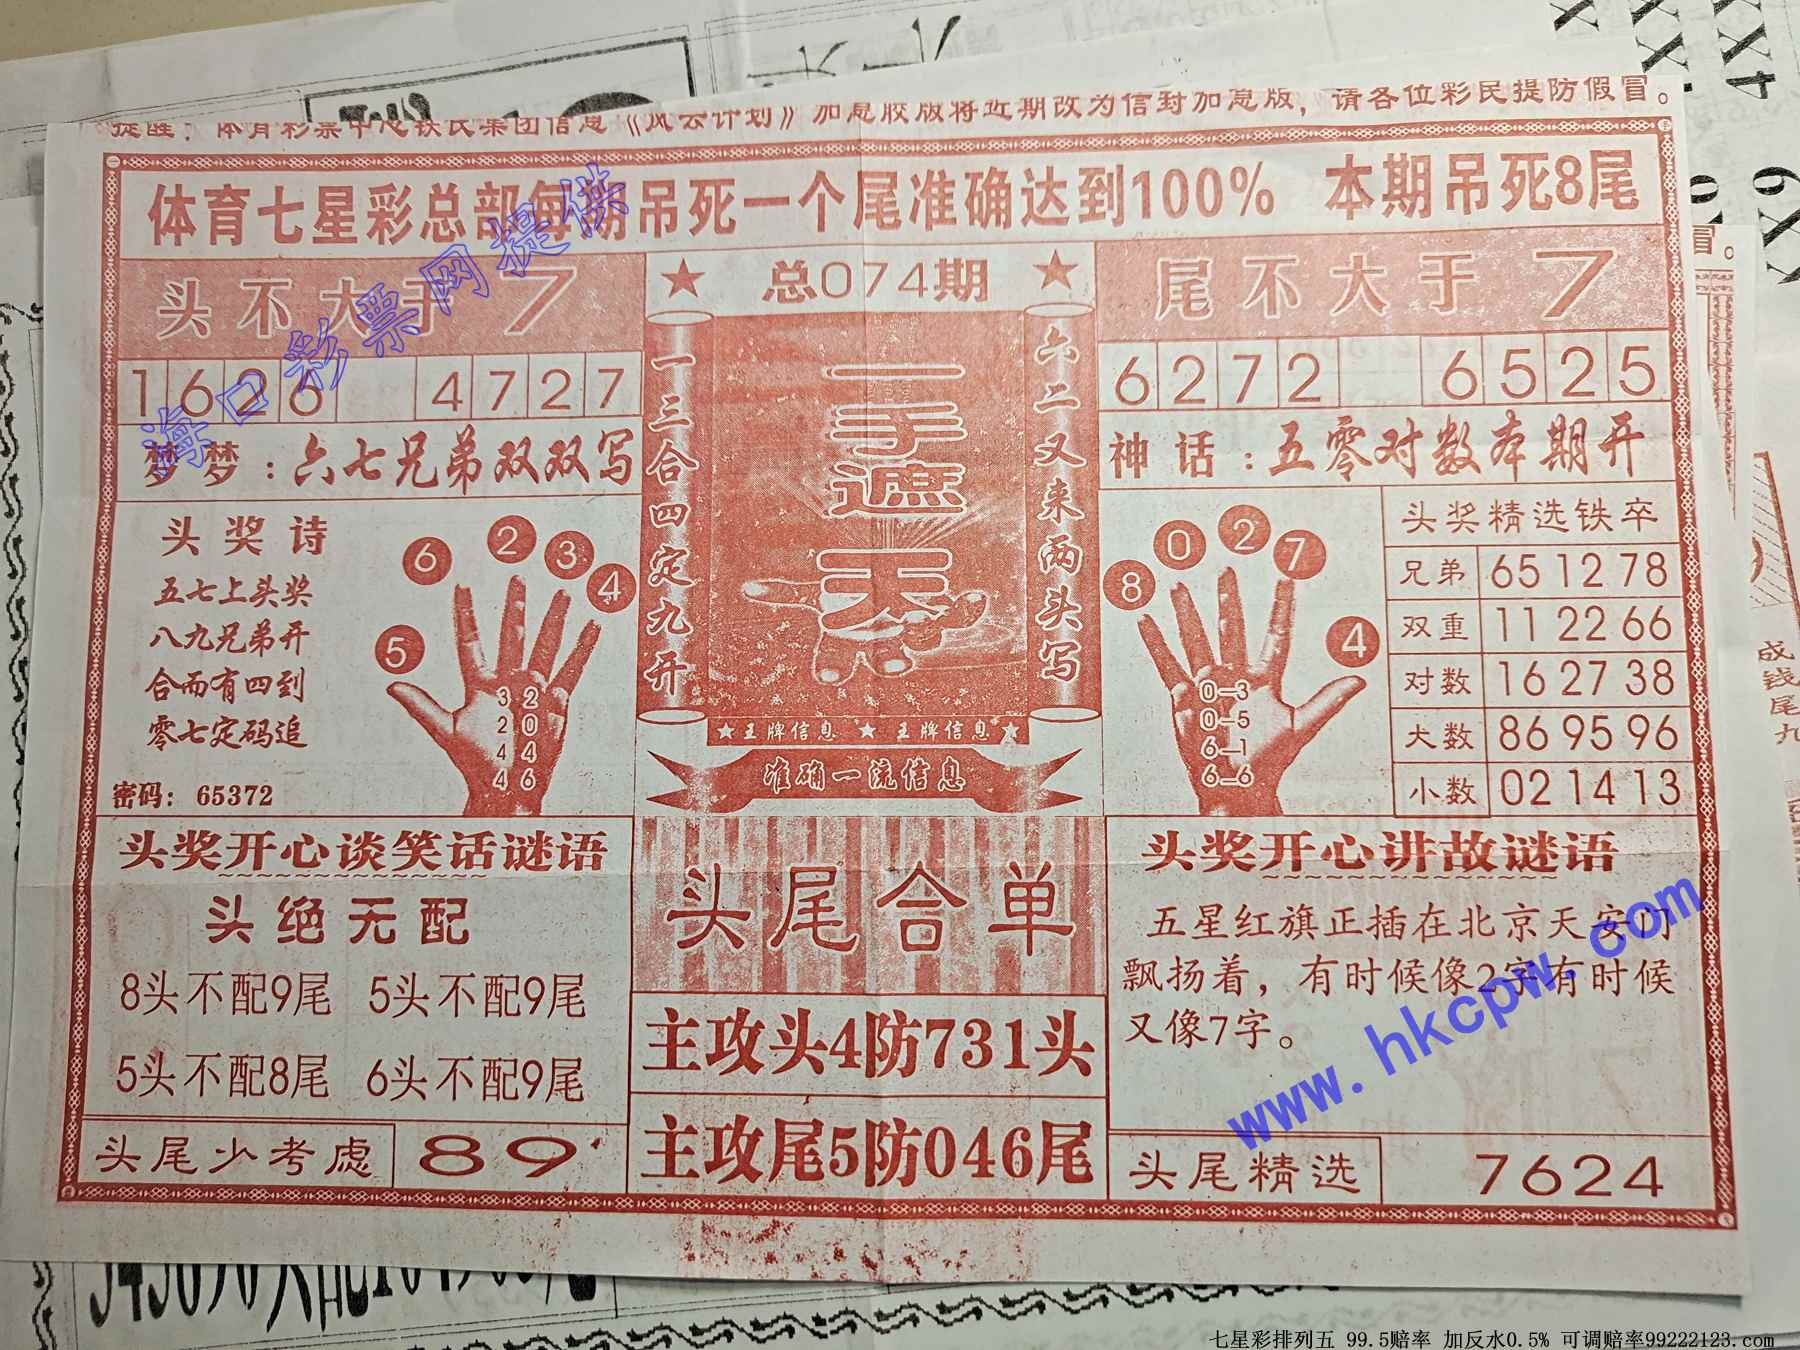 提醒：体育彩票中心铁民集团信息《风云计划》加急胶版将近期改为信封加急版，请各位彩民提防假冒。
体育七星彩总部每期吊死一个尾准确达到100% 本期吊死8尾
头不大于7
★ 总074期 ★
尾不大于7
1626 4727
6272 6525
梦梦：六七兄弟双双写
神话：五零对数本期开
一三合四定九开
一手遮天
六二又来两头写
★王牌信息 ★ 王牌信息★
准确一流信息
头奖诗
五七上头奖
八九兄弟开
合而有四到
零七定码追
密码：65372
6 2 3 4 5
3 2
2 0
4 4
4 6
8 0 2 7 4
0—3
0—5
6—1
6—6
头奖精选铁卒
兄弟 65 12 78
双重 11 22 66
对数 16 27 38
大数 86 95 96
小数 02 14 13
头奖开心谈笑话谜语
头绝无配
8头不配9尾 5头不配9尾
5头不配8尾 6头不配9尾
头尾少考虑 89
头尾合单
主攻头4防731头
主攻尾5防046尾
头奖开心讲故谜语
五星红旗正插在北京天安门
飘扬着，有时候像2字有时候
又像7字。
头尾精选 7624
海口彩票网提供
www.hkcpw.com
七星彩排列五 99.5赔率 加反水0.5% 可调赔率99222123.com